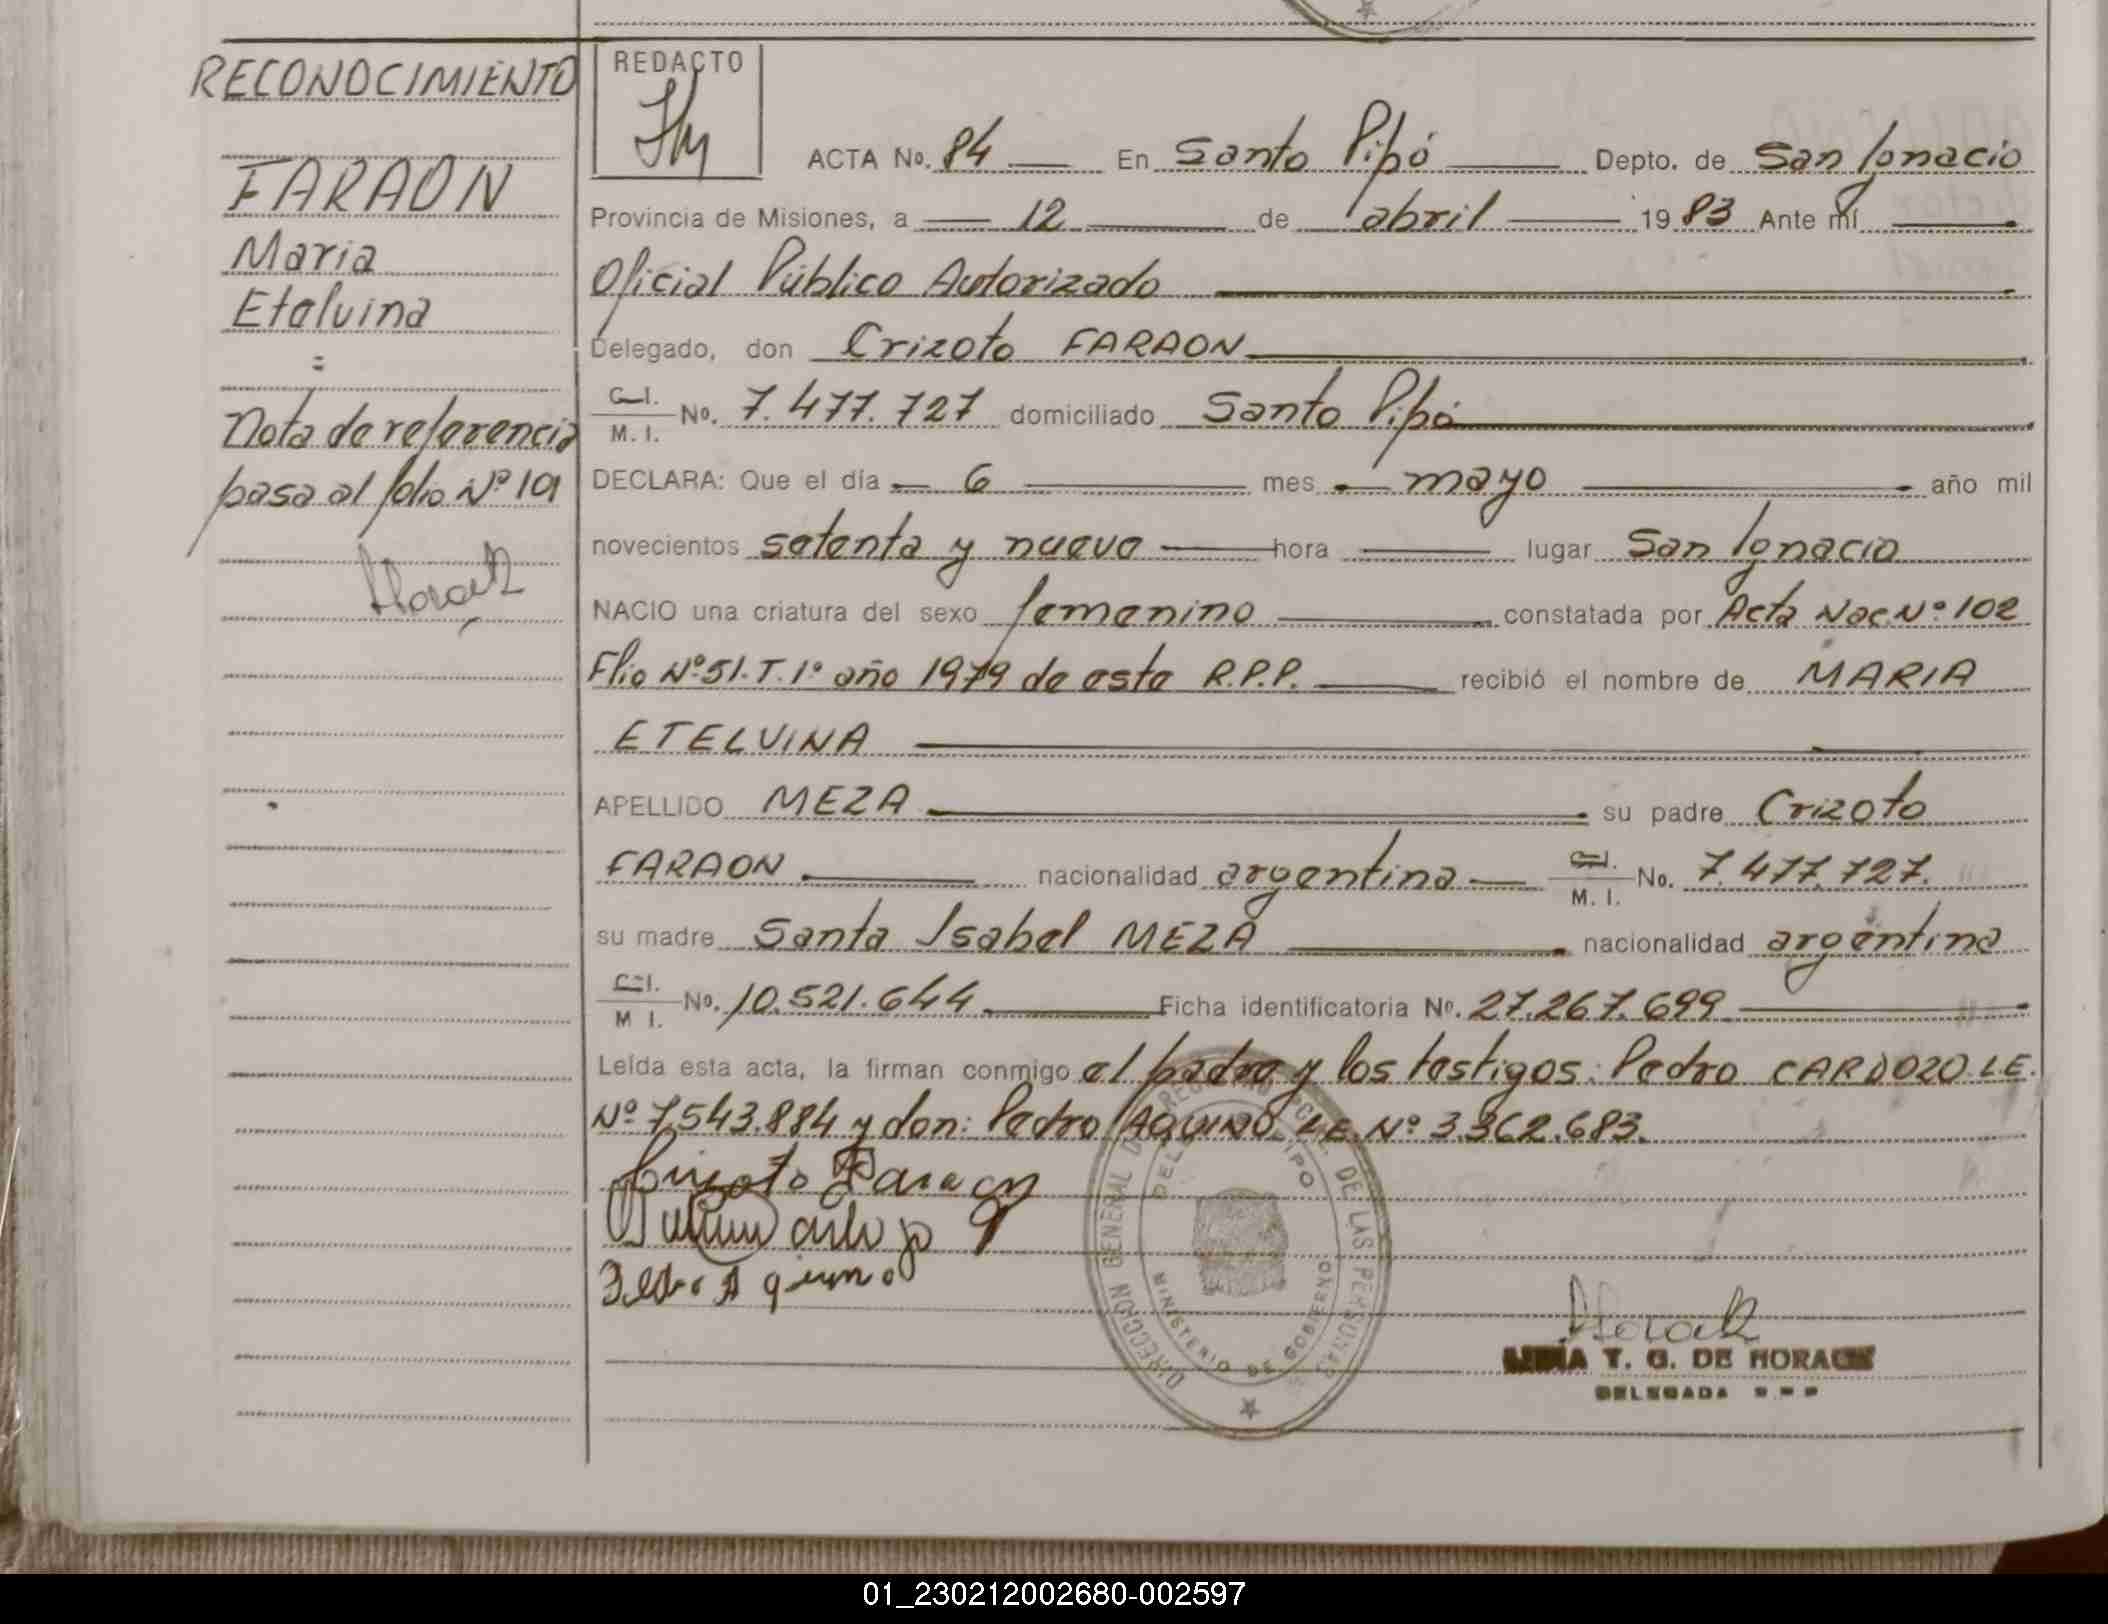 RECONOCIMIENTO
FARAON
Maria
Etelvina
=
Nota de referencia
pasa al folio Nº 101
Horack
REDACTO
ACTA No. 84 En Santo Pipó Depto. de San Ignacio
Provincia de Misiones, a 12 de abril 1983 Ante mí
Oficial Público Autorizado
Delegado, don Crizoto FARAON
C.I. / M.I. No. 7.477.727 domiciliado Santo Pipó
DECLARA: Que el día 6 mes mayo año mil
novecientos setenta y nueve hora lugar San Ignacio
NACIO una criatura del sexo femenino constatada por Acta Nac. Nº 102
Flio Nº 51. T. 1º año 1979 de este R.P.P. recibió el nombre de MARIA
ETELVINA
APELLIDO MEZA su padre Crizoto
FARAON nacionalidad argentina C.I. / M.I. No. 7.477.727.
su madre Santa Isabel MEZA nacionalidad argentina
C.I. / M I. No. 10.521.644 Ficha identificatoria No. 27.267.699
Leída esta acta, la firman conmigo el padre y los testigos: Pedro CARDOZO L.E.
Nº 7.543.884 y don: Pedro AQUINO L.E. Nº 3.362.683.
Crizoto Faraon
Pedro Aquino
DIRECCION GENERAL DEL REGISTRO PCIAL. DE LAS PERSONAS
MINISTERIO DE GOBIERNO
Horack
T. G. DE HORACK
DELEGADA R.P.P
01_230212002680-002597